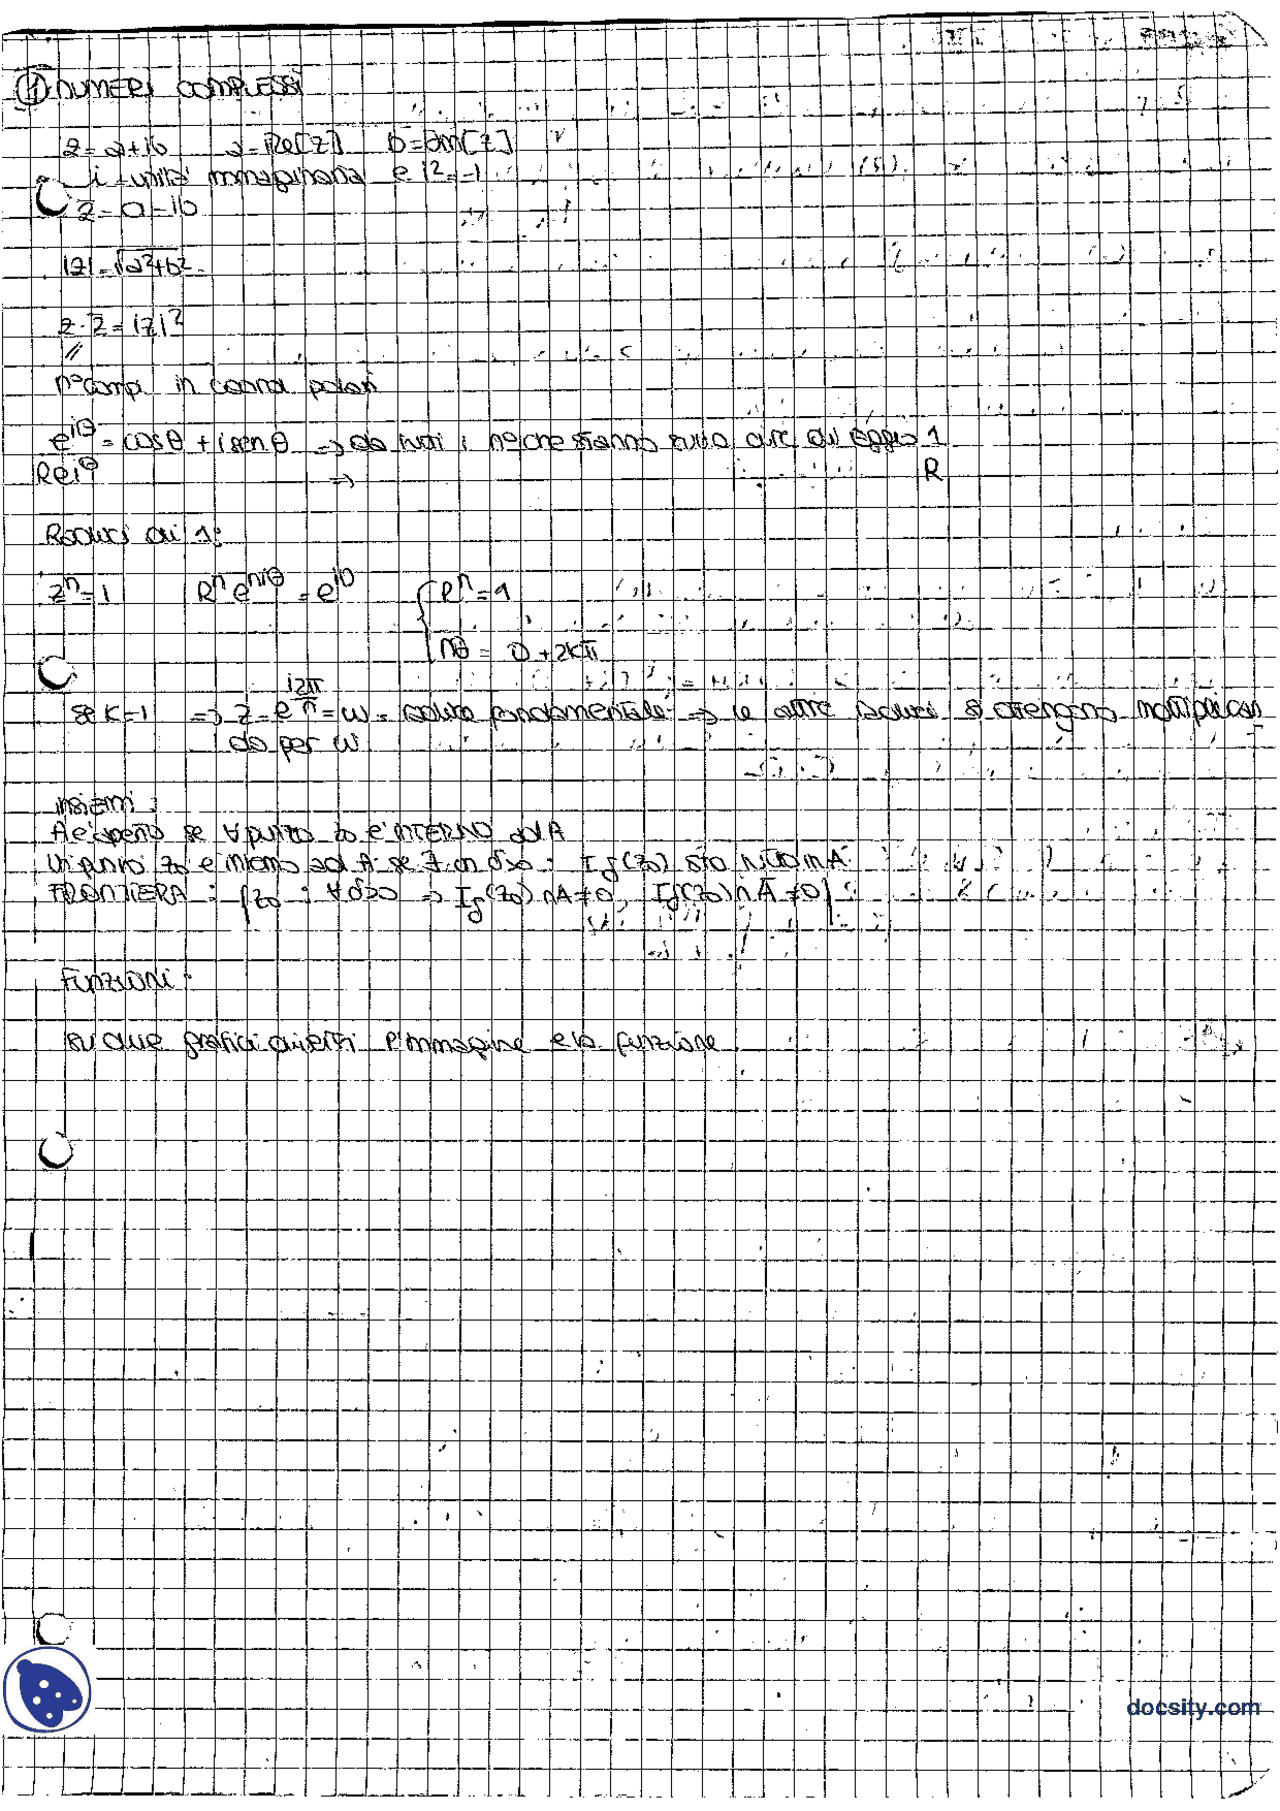 ① NUMERI COMPLESSI
z = a+ib a=Re[z] b=Im[z]
i = unità immaginaria e i²=-1
z̅ = a-ib
|z| = √a²+b²
z·z̅ = |z|²
//
n° comp. in coord. polari
e^iθ = cosθ + i senθ => do tutti i n° che stanno sulla circ di raggio 1
Re^iθ => R
Radici di 1:
z^n = 1 R^n e^niθ = e^i0 { R^n = 1
nθ = 0 + 2kπ
se k=1 => z = e^i2π/n = ω = radice fondamentale => le altre radici si ottengono moltiplican
do per ω
insiemi:
A è aperto se ∀ punto z₀ è INTERNO ad A
Un punto z₀ è interno ad A se ∃ un δ>0 : Iδ(z₀) sta tutto in A
FRONTIERA : {z₀ : ∀δ>0 => Iδ(z₀)∩A≠0, Iδ(z₀)∩A̅≠0}
Funzioni:
su due grafici diversi l'immagine e la funzione
docsity.com